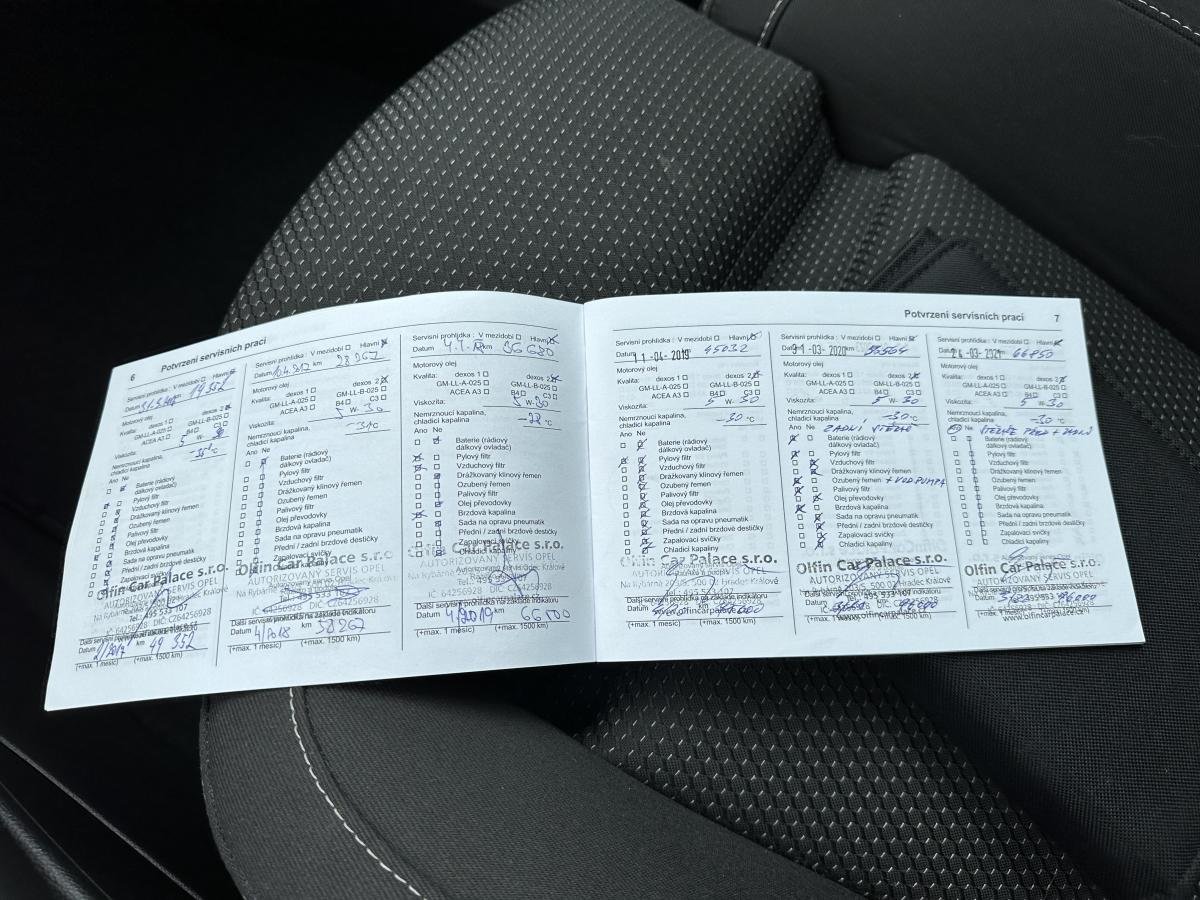 6 Potvrzení servisních prací
Servisní prohlídka : V mezidobí Hlavní
Datum km 19 552
Motorový olej
Kvalita: dexos 1 dexos 2
GM-LL-A-025 GM-LL-B-025
ACEA A3 B4 C3
Viskozita: 5 W- 30
Nemrznoucí kapalina,
chladicí kapalina °C
Ano Ne
Baterie (rádiový
dálkový ovladač)
Pylový filtr
Vzduchový filtr
Drážkovaný klínový řemen
Ozubený řemen
Palivový filtr
Olej převodovky
Brzdová kapalina
Sada na opravu pneumatik
Přední / zadní brzdové destičky
Zapalovací svíčky
Olfin Car Palace s.r.o.
AUTORIZOVANÝ SERVIS OPEL
IČ 64256928 DIČ: CZ64256928
Další servisní prohlídka
Datum km 49 552
(+max. 1 měsíc) (+max. 1500 km)
Servisní prohlídka : V mezidobí Hlavní
Datum km 28 262
Motorový olej
Kvalita: dexos 1 dexos 2
GM-LL-A-025 GM-LL-B-025
ACEA A3 B4 C3
Viskozita: 5 W- 30
Nemrznoucí kapalina,
chladicí kapalina °C
Ano Ne
Baterie (rádiový
dálkový ovladač)
Pylový filtr
Vzduchový filtr
Drážkovaný klínový řemen
Ozubený řemen
Palivový filtr
Olej převodovky
Brzdová kapalina
Sada na opravu pneumatik
Přední / zadní brzdové destičky
Zapalovací svíčky
Olfin Car Palace s.r.o.
AUTORIZOVANÝ SERVIS OPEL
IČ 64256928 DIČ CZ64256928
Datum 4/2018 km 58262
(+max. 1 měsíc) (+max. 1500 km)
Servisní prohlídka : V mezidobí Hlavní
Datum km 36 680
Motorový olej
Kvalita: dexos 1 dexos 2
GM-LL-A-025 GM-LL-B-025
ACEA A3 B4 C3
Viskozita: 5 W- 30
Nemrznoucí kapalina,
chladicí kapalina °C
Ano Ne
Baterie (rádiový
dálkový ovladač)
Pylový filtr
Vzduchový filtr
Drážkovaný klínový řemen
Ozubený řemen
Palivový filtr
Olej převodovky
Brzdová kapalina
Sada na opravu pneumatik
Přední / zadní brzdové destičky
Zapalovací svíčky
Chladicí kapaliny
Olfin Car Palace s.r.o.
AUTORIZOVANÝ SERVIS OPEL
Další servisní prohlídka na základě indikátoru
Datum 4/2019 km 66700
(+max. 1 měsíc) (+max. 1500 km)
Potvrzení servisních prací 7
Servisní prohlídka : V mezidobí Hlavní
Datum 11 -04- 2019 45032
Motorový olej
Kvalita: dexos 1 dexos 2
GM-LL-A-025 GM-LL-B-025
ACEA A3 B4 C3
Viskozita: 5 W- 30
Nemrznoucí kapalina,
chladicí kapalina -30 °C
Ano Ne
Baterie (rádiový
dálkový ovladač)
Pylový filtr
Vzduchový filtr
Drážkovaný klínový řemen
Ozubený řemen
Palivový filtr
Olej převodovky
Brzdová kapalina
Sada na opravu pneumatik
Přední / zadní brzdové destičky
Zapalovací svíčky
Chladicí kapaliny
Olfin Car Palace s.r.o.
AUTORIZOVANÝ SERVIS OPEL
Další servisní prohlídka na základě indikátoru
Datum
(+max. 1 měsíc) (+max. 1500 km)
Servisní prohlídka : V mezidobí Hlavní
-03- 2020
Motorový olej
Kvalita: dexos 1 dexos 2
GM-LL-A-025 GM-LL-B-025
ACEA A3 B4 C3
Viskozita: 5 W- 30
Nemrznoucí kapalina,
chladicí kapalina -30 °C
Ano Ne ZADNÍ STĚRAČ
Baterie (rádiový
dálkový ovladač)
Pylový filtr
Vzduchový filtr
Drážkovaný klínový řemen
Ozubený řemen + VOD. PUMPA
Palivový filtr
Olej převodovky
Brzdová kapalina
Sada na opravu pneumatik
Přední / zadní brzdové destičky
Zapalovací svíčky
Chladicí kapaliny
Olfin Car Palace s.r.o.
AUTORIZOVANÝ SERVIS OPEL
(+max. 1 měsíc) (+max. 1500 km)
Servisní prohlídka : V mezidobí Hlavní
-03- 2021 66850
Motorový olej
Kvalita: dexos 1 dexos 2
GM-LL-A-025 GM-LL-B-025
ACEA A3 B4 C3
Viskozita: 5 W- 30
Nemrznoucí kapalina,
chladicí kapalina -30 °C
Ne
Baterie (rádiový
dálkový ovladač)
Pylový filtr
Vzduchový filtr
Drážkovaný klínový řemen
Ozubený řemen
Palivový filtr
Olej převodovky
Brzdová kapalina
Sada na opravu pneumatik
Přední / zadní brzdové destičky
Zapalovací svíčky
Chladicí kapaliny
Olfin Car Palace s.r.o.
(+max. 1 měsíc) (+max. 1500 km)